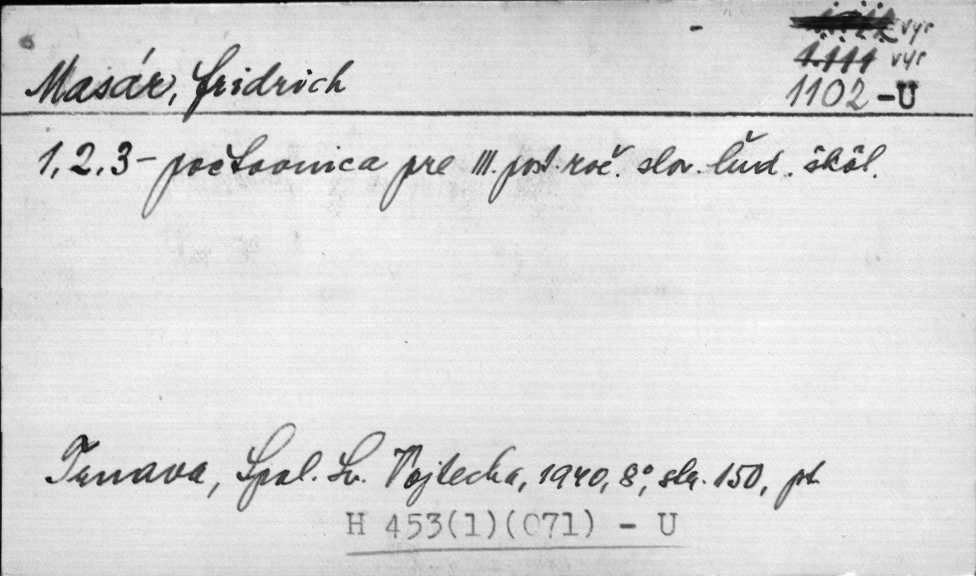 vyr
1.111 vyr
Masár, Fridrich
1102-U
1, 2, 3 - počtovnica pre III. post. roč. slov. ľud. škôl.
Trnava, Spol. Sv. Vojtecha, 1940, 8°, str. 150, pt
H 453(1)(071) - U